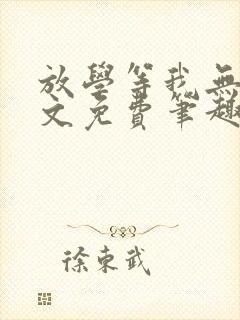 放學等我無
文免費筆趣
徐東武